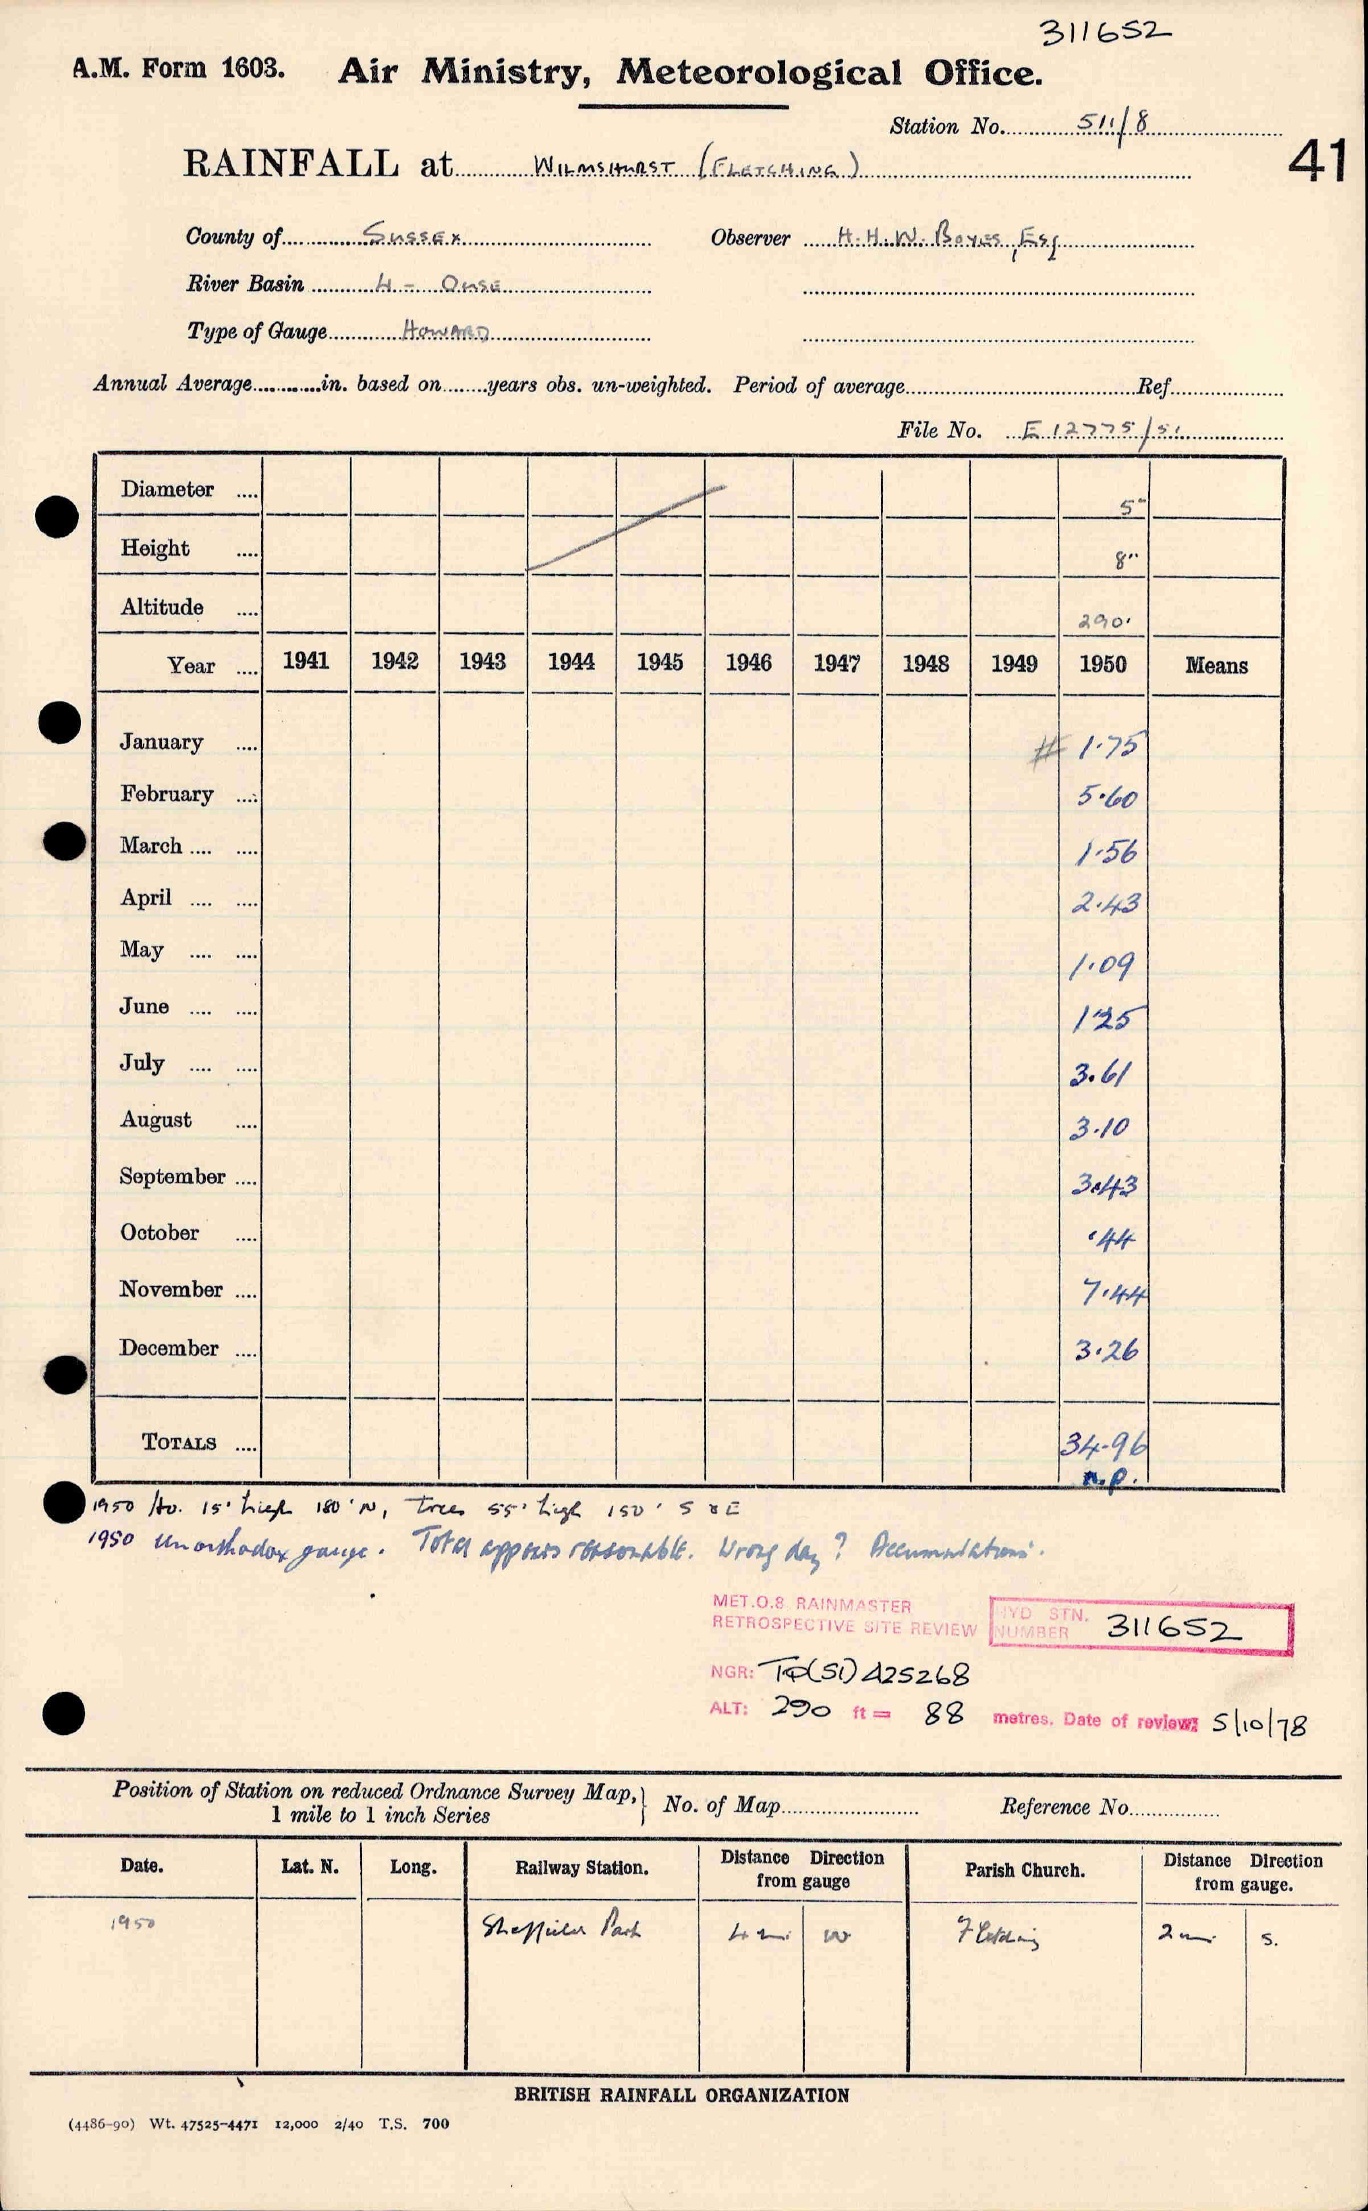 311652
A.M. Form 1603. Air Ministry, Meteorological Office.
Station No. 511/8
41
RAINFALL at WILMSHURST (FLETCHING)
County of Sussex Observer H.H.W. Boyes, Esq
River Basin 4 - Ouse
Type of Gauge HOWARD
Annual Average in. based on years obs. un-weighted. Period of average Ref.
File No. E 12775/51
Diameter .... 5"
Height .... 8"
Altitude .... 290'
Year .... 1941 1942 1943 1944 1945 1946 1947 1948 1949 1950 Means
January .... # 1.75
February .... 5.60
March .... .... 1.56
April .... .... 2.43
May .... .... 1.09
June .... .... 1.25
July .... .... 3.61
August .... 3.10
September .... 3.43
October .... .44
November .... 7.44
December .... 3.26
TOTALS .... 34.96
n.p.
1950 Ho. 15' high 180' N, trees 55' high 150' S & E
1950 Unorthodox gauge. Total appears reasonable. Wrong day? Accumulations.
MET.O.8 RAINMASTER
RETROSPECTIVE SITE REVIEW
HYD STN. NUMBER 311652
NGR: TQ(51) 425268
ALT: 290 ft = 88 metres. Date of review: 5/10/78
Position of Station on reduced Ordnance Survey Map, 1 mile to 1 inch Series } No. of Map Reference No.
Date. Lat. N. Long. Railway Station. Distance Direction from gauge Parish Church. Distance Direction from gauge.
1950 Sheffield Park 4 mi W Fletching 2 mi S.
BRITISH RAINFALL ORGANIZATION
(4486-90) Wt. 47525-4471 12,000 2/40 T.S. 700